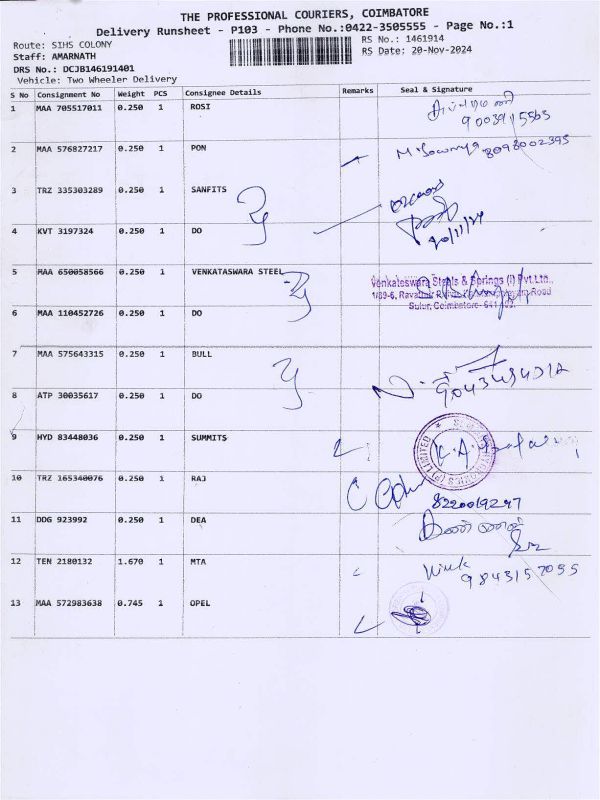 THE PROFESSIONAL COURIERS, COIMBATORE
Delivery Runsheet - P103 - Phone No.:0422-3505555 - Page No.:1
Route: SIHS COLONY
RS No.: 1461914
Staff: AMARNATH
RS Date: 20-Nov-2024
DRS No.: DCJB146191401
Vehicle: Two Wheeler Delivery
S No Consignment No Weight PCS Consignee Details Remarks Seal & Signature
1 MAA 705517011 0.250 1 ROSI
2 MAA 576827217 0.250 1 PON
M. Sowmya 8098002395
3 TRZ 335303289 0.250 1 SANFITS
4 KVT 3197324 0.250 1 DO
20/11/24
5 MAA 650058566 0.250 1 VENKATASWARA STEEL
Venkateswara Steels & Springs (I) Pvt.Ltd.,
Sulur, Coimbatore-
6 MAA 110452726 0.250 1 DO
7 MAA 575643315 0.250 1 BULL
8 ATP 30035617 0.250 1 DO
9 HYD 83448036 0.250 1 SUMMITS
10 TRZ 165340076 0.250 1 RAJ
8220019247
11 DDG 923992 0.250 1 DEA
12 TEN 2180132 1.670 1 MTA
9843157055
13 MAA 572983638 0.745 1 OPEL